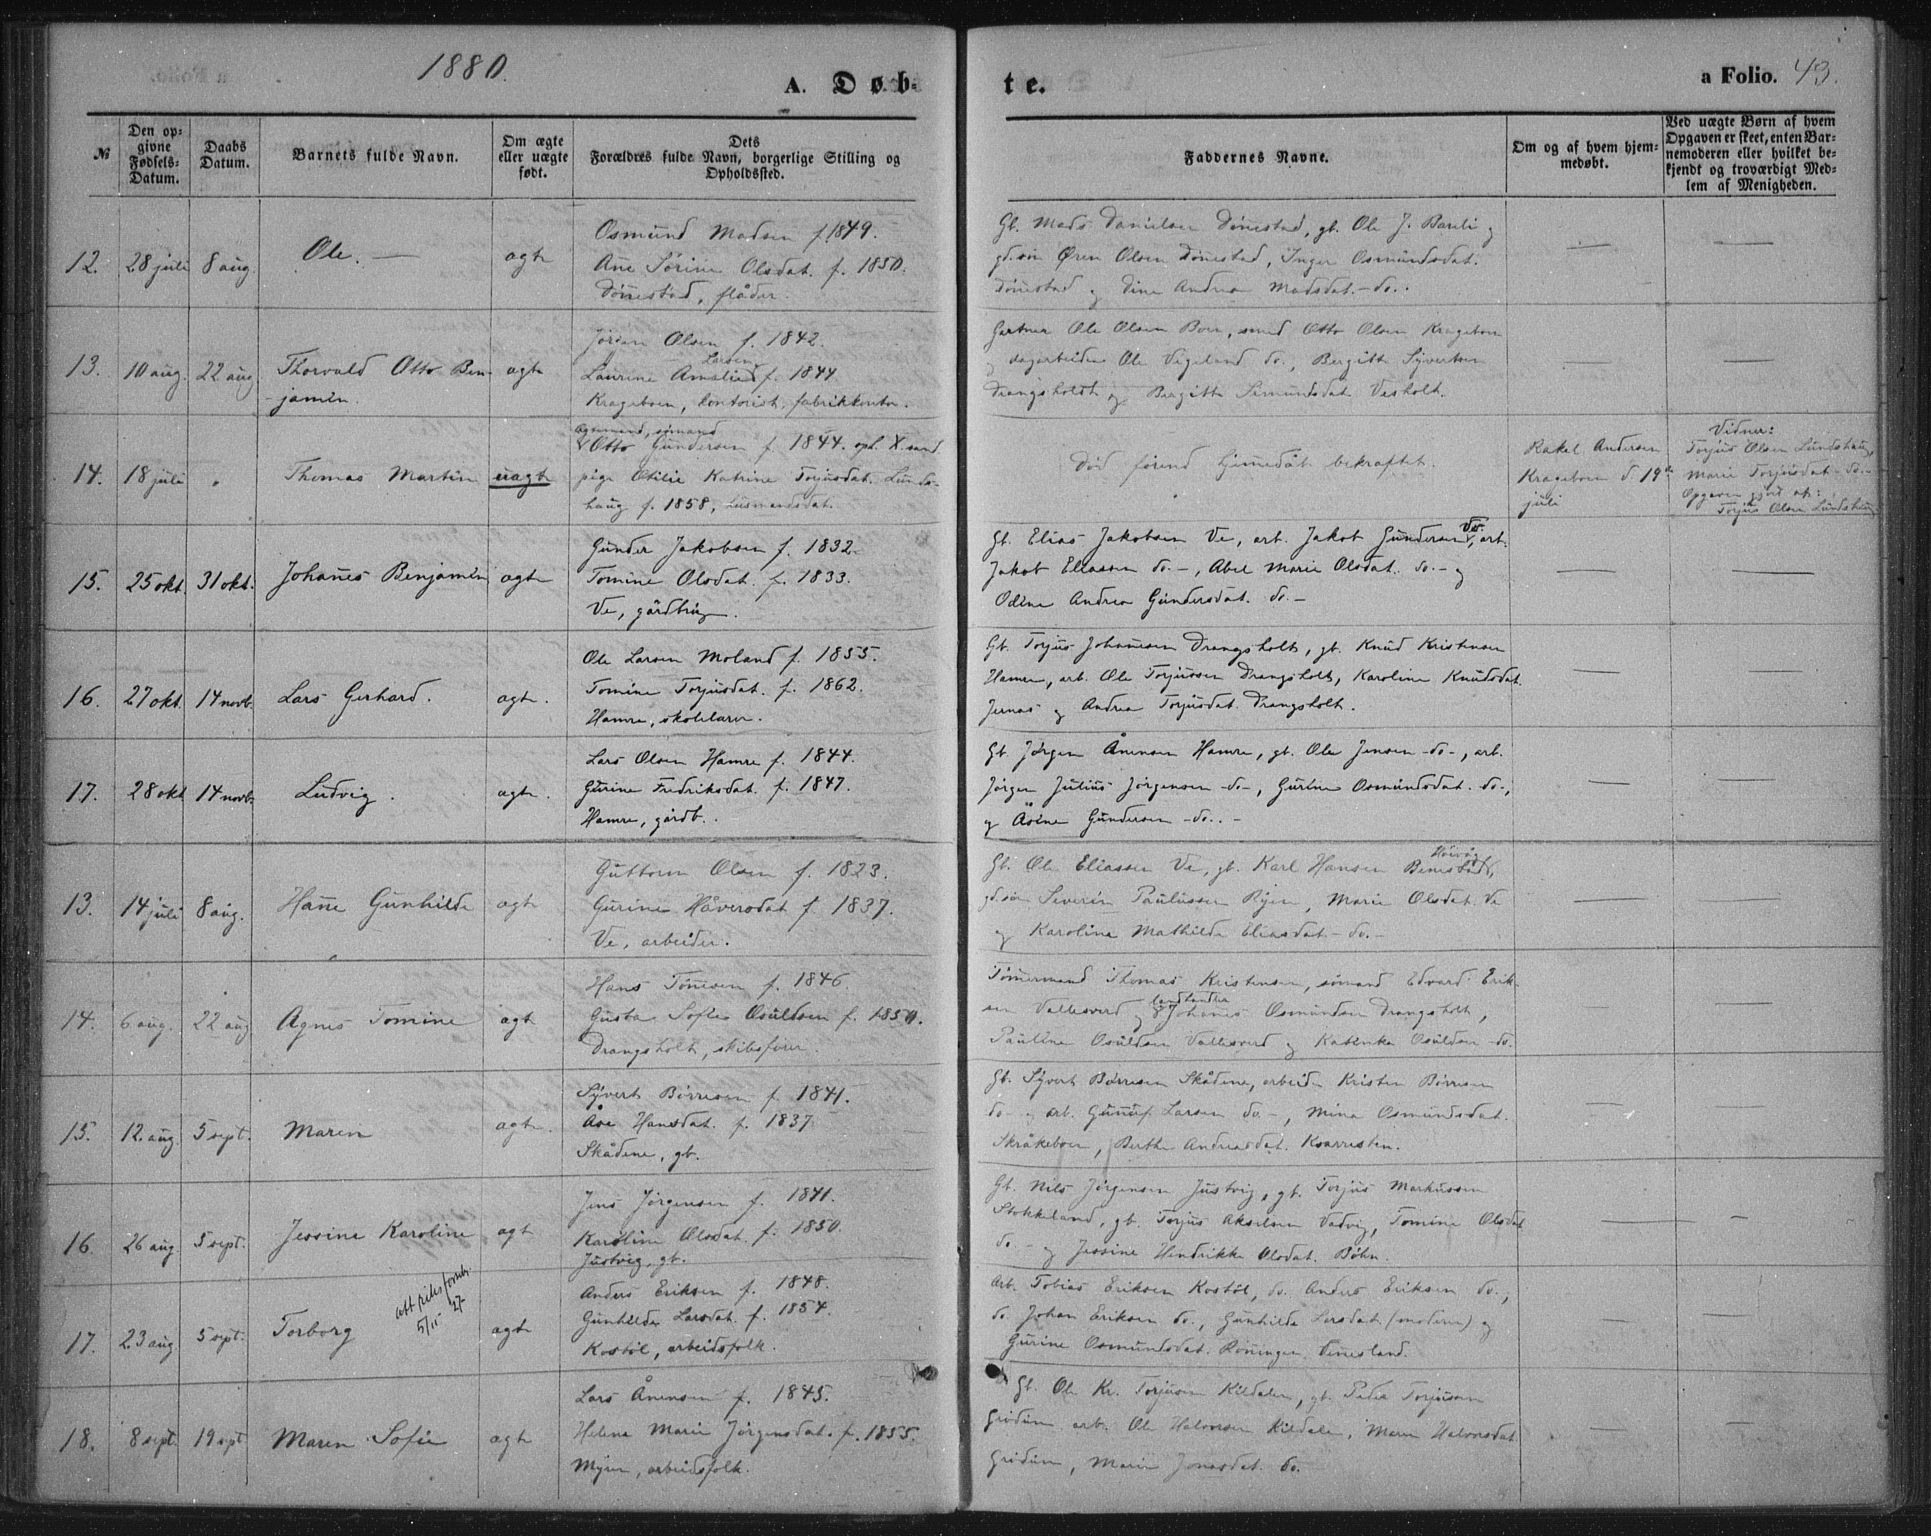 1880.
A. Døb-
te.
a Folio. 43.
№
Den op-
givne
Fødsels-
Datum.
Daabs
Datum.
Barnets fulde Navn.
Om ægte
eller uægte
født.
Dets
Forældres fulde Navn, borgerlige Stilling og
Opholdssted.
Faddernes Navne.
Om og af hvem hjem-
medøbt.
Ved uægte Børn af hvem
Opgaven er skeet, enten Bar-
nemoderen eller hvilket be-
kjendt og troværdigt Med-
lem af Menigheden.
12. 28 juli 8 aug. Ole. — ægte
Osmund Madsen f. 1849.
Ane Sörine Olsdat. f. 1850.
Dönnestad, flåder.
Gb. Mads Danielsen Dönestad, gb. Ole J. Barli og
gd.søn Ören Olsen Dönestad, Inger Osmundsdat.
Dönestad og Dine Andrea Madsdat. - do.
13. 10 aug. 22 aug. Thorvald Otto Ben-
jamin.
ægte
Jörgen Olsen f. 1842.
Laurine Amalie Larsen f. 1844.
Krageboen, kontorist, fabrikkontor.
Gartner Ole Olsen Boen, smed Otto Olsen Krageboen
og dagarbeider Ole Vigeland do., Bergitte Syvertsen
Drangsholdt og Bergitte Simundsdat. Vesholt.
14. 18 juli " Thomas Martin uægte
Otto Gundersen f. 1844. opl. X.sand
pige Otilie Katrine Torjusdat. Lunds-
haug f. 1858, husmandsdat.
Död förend hjemmedåb bekræftet.
Rakel Andersen
Krageboen d. 19de
juli
Vidner:
Torjus Olsen Lundshaug,
Marie Torjusdat - do. -
Opgaven gjort af:
Torjus Olsen Lundshaug
15. 25 okt. 31 okt. Johanes Benjamin ægte
Gunder Jakobsen f. 1832.
Tomine Olsdat. f. 1833.
Ve, gårdbrug.
Gb. Elias Jakobsen Ve, arb. Jakob Gundersen Ve, arb.
Jakob Eliassen do. -, Abel Marie Olsdat. do. - og
Odine Andrea Gundersdat. do. -
16. 27 okt. 14 novb. Lars Gerhard. ægte.
Ole Larsen Moland f. 1855.
Tomine Torjusdat. f. 1862.
Hamre, skolelærer.
Gb. Torjus Johanesen Drangsholt, gb. Knud Kristensen
Hamre, arb. Ole Torjussen Drangsholt, Karoline Knudsdat.
Jernæs og Andrea Torjusdat. Drangsholt.
17. 28 okt. 14 novb. Ludvig. ægte.
Lars Olsen Hamre f. 1844.
Gurine Fredriksdat. f. 1847.
Hamre, gårdb.
Gb. Jörgen Ånensen Hamre, gb. Ole Jensen - do -, arb.
Jörgen Julius Jörgensen - do -, Gurine Osmundsdat. do -,
og Åsine Gundersen - do. -
13. 14 juli 8 aug. Hanne Gunhilde ægte
Guttorm Olsen f. 1823.
Gurine Håversdat f. 1837.
Ve, arbeider.
Gb. Ole Eliassen Ve, gb. Karl Hansen Benestad Höivåg,
gd.søn Severin Paulussen Ryen, Marie Olsdat. Ve
og Karoline Mathilde Eliasdat - do. -
14. 6 aug. 22 aug. Agnes Tomine ægte
Hans Tönnesen f. 1846.
Gusta Sofie Osuldsen f. 1850.
Drangsholt, skibsförer.
Tömmermand Thomas Kristensen, sömand Edvard Erik-
sen Vallesverd og landhandler Johanes Osmundsen Drangsholt,
Pauline Osuldsen Vallesverd og Kathinka Osuldsen - do.
15. 12. aug. 5 sept. Maren ægte.
Syvert Börresen f. 1841.
Åse Hansdat. f. 1837
Skådene, gb.
Gb. Syvert Börresen Skådene, arbeid. Kristen Börresen
do - , arb. Gunuf Larsen do -, Mina Osmundsdat.
Skråkeboen, Berthe Andreasdat. Kvarresten.
16. 26 aug. 5 sept. Jessine Karoline ægte
Jens Jörgensen f. 1841.
Karoline Olsdat. f. 1850.
Justvig, gb.
Gb. Nils Jörgensen Justvig, gb. Torjus Markussen
Stokkeland, gb. Torjus Akselsen Vadvig, Tomine Olsdat
do. - og Jessine Hendrikke Olsdat. Böhn.
17. 23 aug. 5 sept. Torborg ægte
5/11 27
Anders Eriksen f. 1848.
Gunhilde Larsdat. f. 1854.
Kostöl, arbeidsfolk.
Arb. Tobias Eriksen Kostöl, do. Anders Eriksen do.,
do. Johan Eriksen do., Gunhilde Larsdat (moderen) og
Gurine Osmundsdat. Röningen Venesland.
18. 8 sept. 19 sept Maren Sofie ægte
Lars Ånensen f. 1845.
Helene Marie Jörgensdat. f. 1855.
Myren, arbeidsfolk.
Gb. Ole Kr. Torjusen Kildalen, gb. Peder Torjusen
Grödum, arb. Ole Halvorsen Kildalen, Maren Halvorsdat.
Grödum, Marie Jonasdat. do.